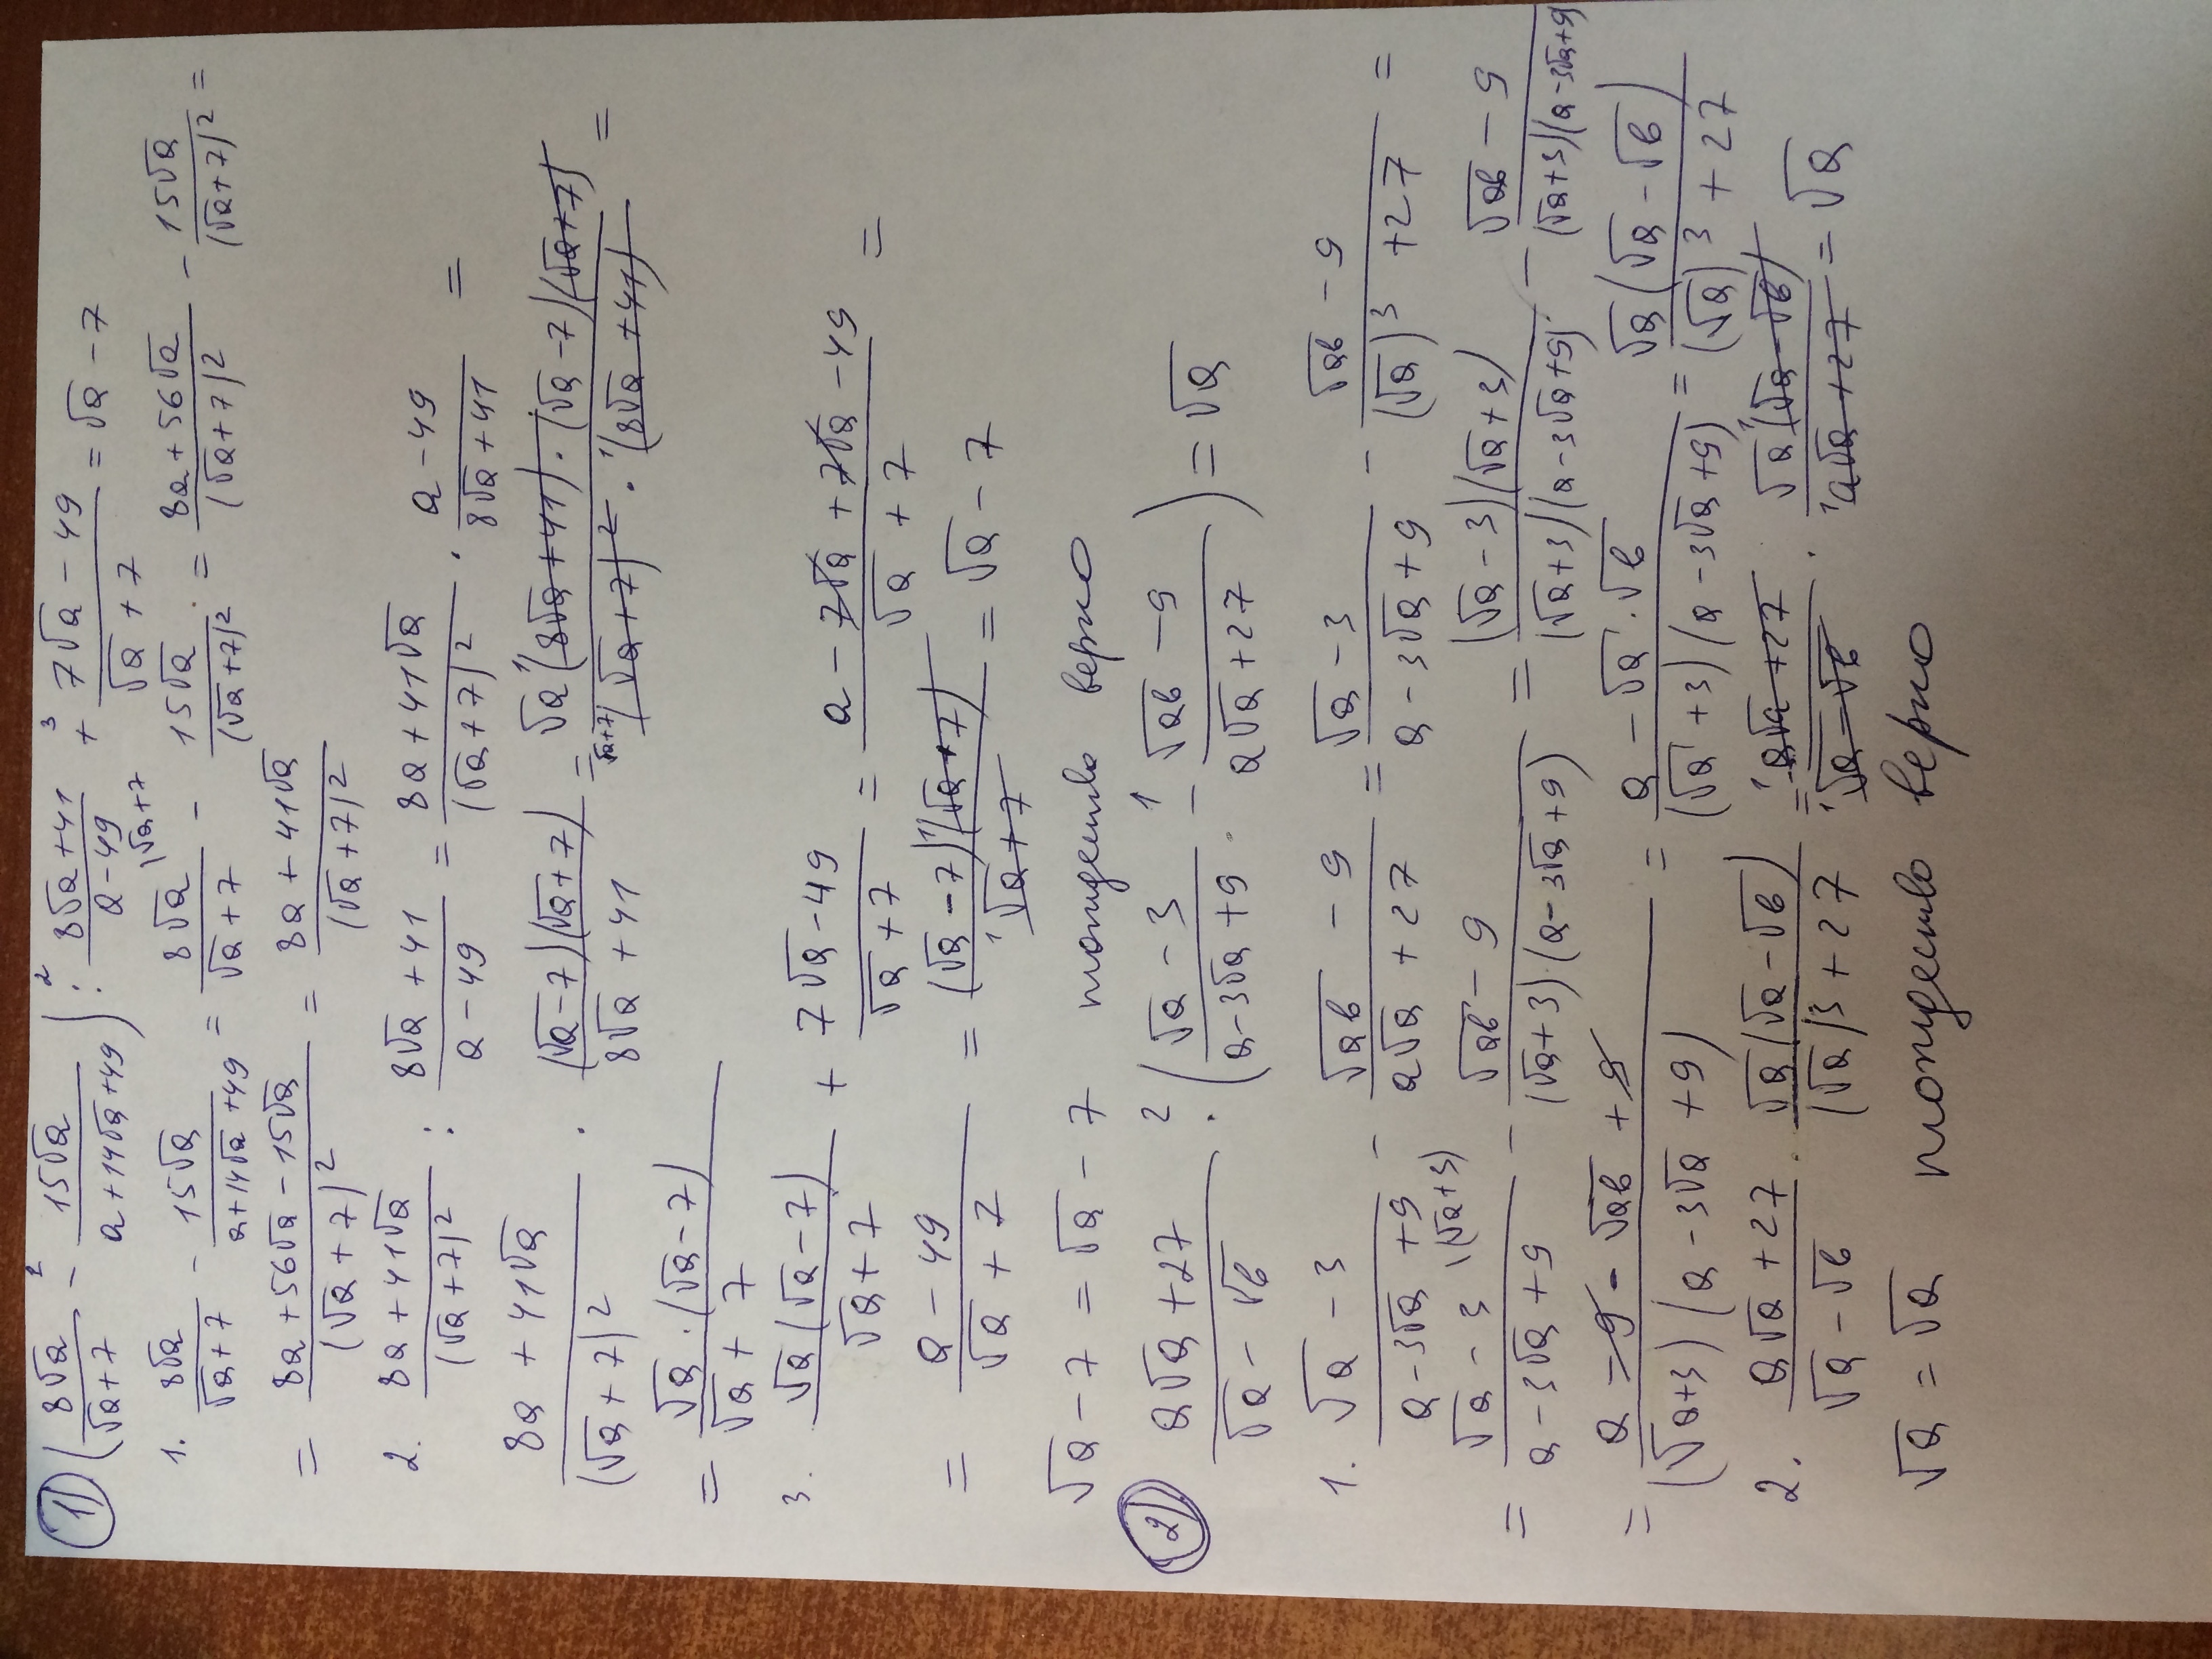 1) (8√a/(√a+7) - 15√a/(a+14√a+49)) : (8√a+41)/(a-49) + (7√a-49)/(√a+7) = √a-7
1. 8√a/(√a+7) - 15√a/(a+14√a+49) = 8√a/(√a+7) - 15√a/(√a+7)² = (8a+56√a)/(√a+7)² - 15√a/(√a+7)² =
= (8a+56√a-15√a)/(√a+7)² = (8a+41√a)/(√a+7)²
2. (8a+41√a)/(√a+7)² : (8√a+41)/(a-49) = (8a+41√a)/(√a+7)² · (a-49)/(8√a+41) =
(8a+41√a)/(√a+7)² · (√a-7)(√a+7)/(8√a+41) = √a(8√a+41)·(√a-7)(√a+7)/((√a+7)²·(8√a+41)) =
= √a·(√a-7)/(√a+7)
3. √a(√a-7)/(√a+7) + (7√a-49)/(√a+7) = (a-7√a+7√a-49)/(√a+7) =
= (a-49)/(√a+7) = (√a-7)(√a+7)/(√a+7) = √a-7
√a-7=√a-7 тождество верно
2) (a√a+27)/(√a-√b) · ((√a-3)/(a-3√a+9) - (√ab-9)/(a√a+27)) = √a
1. (√a-3)/(a-3√a+9) - (√ab-9)/(a√a+27) = (√a-3)/(a-3√a+9) - (√ab-9)/((√a)³+27) =
= (√a-3)/(a-3√a+9) - (√ab-9)/((√a+3)·(a-3√a+9)) = (√a-3)(√a+3)/((√a+3)(a-3√a+9)) - (√ab-9)/((√a+3)(a-3√a+9)
= (a-9-√ab+9)/((√a+3)(a-3√a+9)) = (a-√a·√b)/((√a+3)(a-3√a+9)) = √a(√a-√b)/((√a)³+27)
2. (a√a+27)/(√a-√b) · √a(√a-√b)/((√a)³+27) = (a√a+27)/(√a-√b) · √a(√a-√b)/(a√a+27) = √a
√a=√a тождество верно